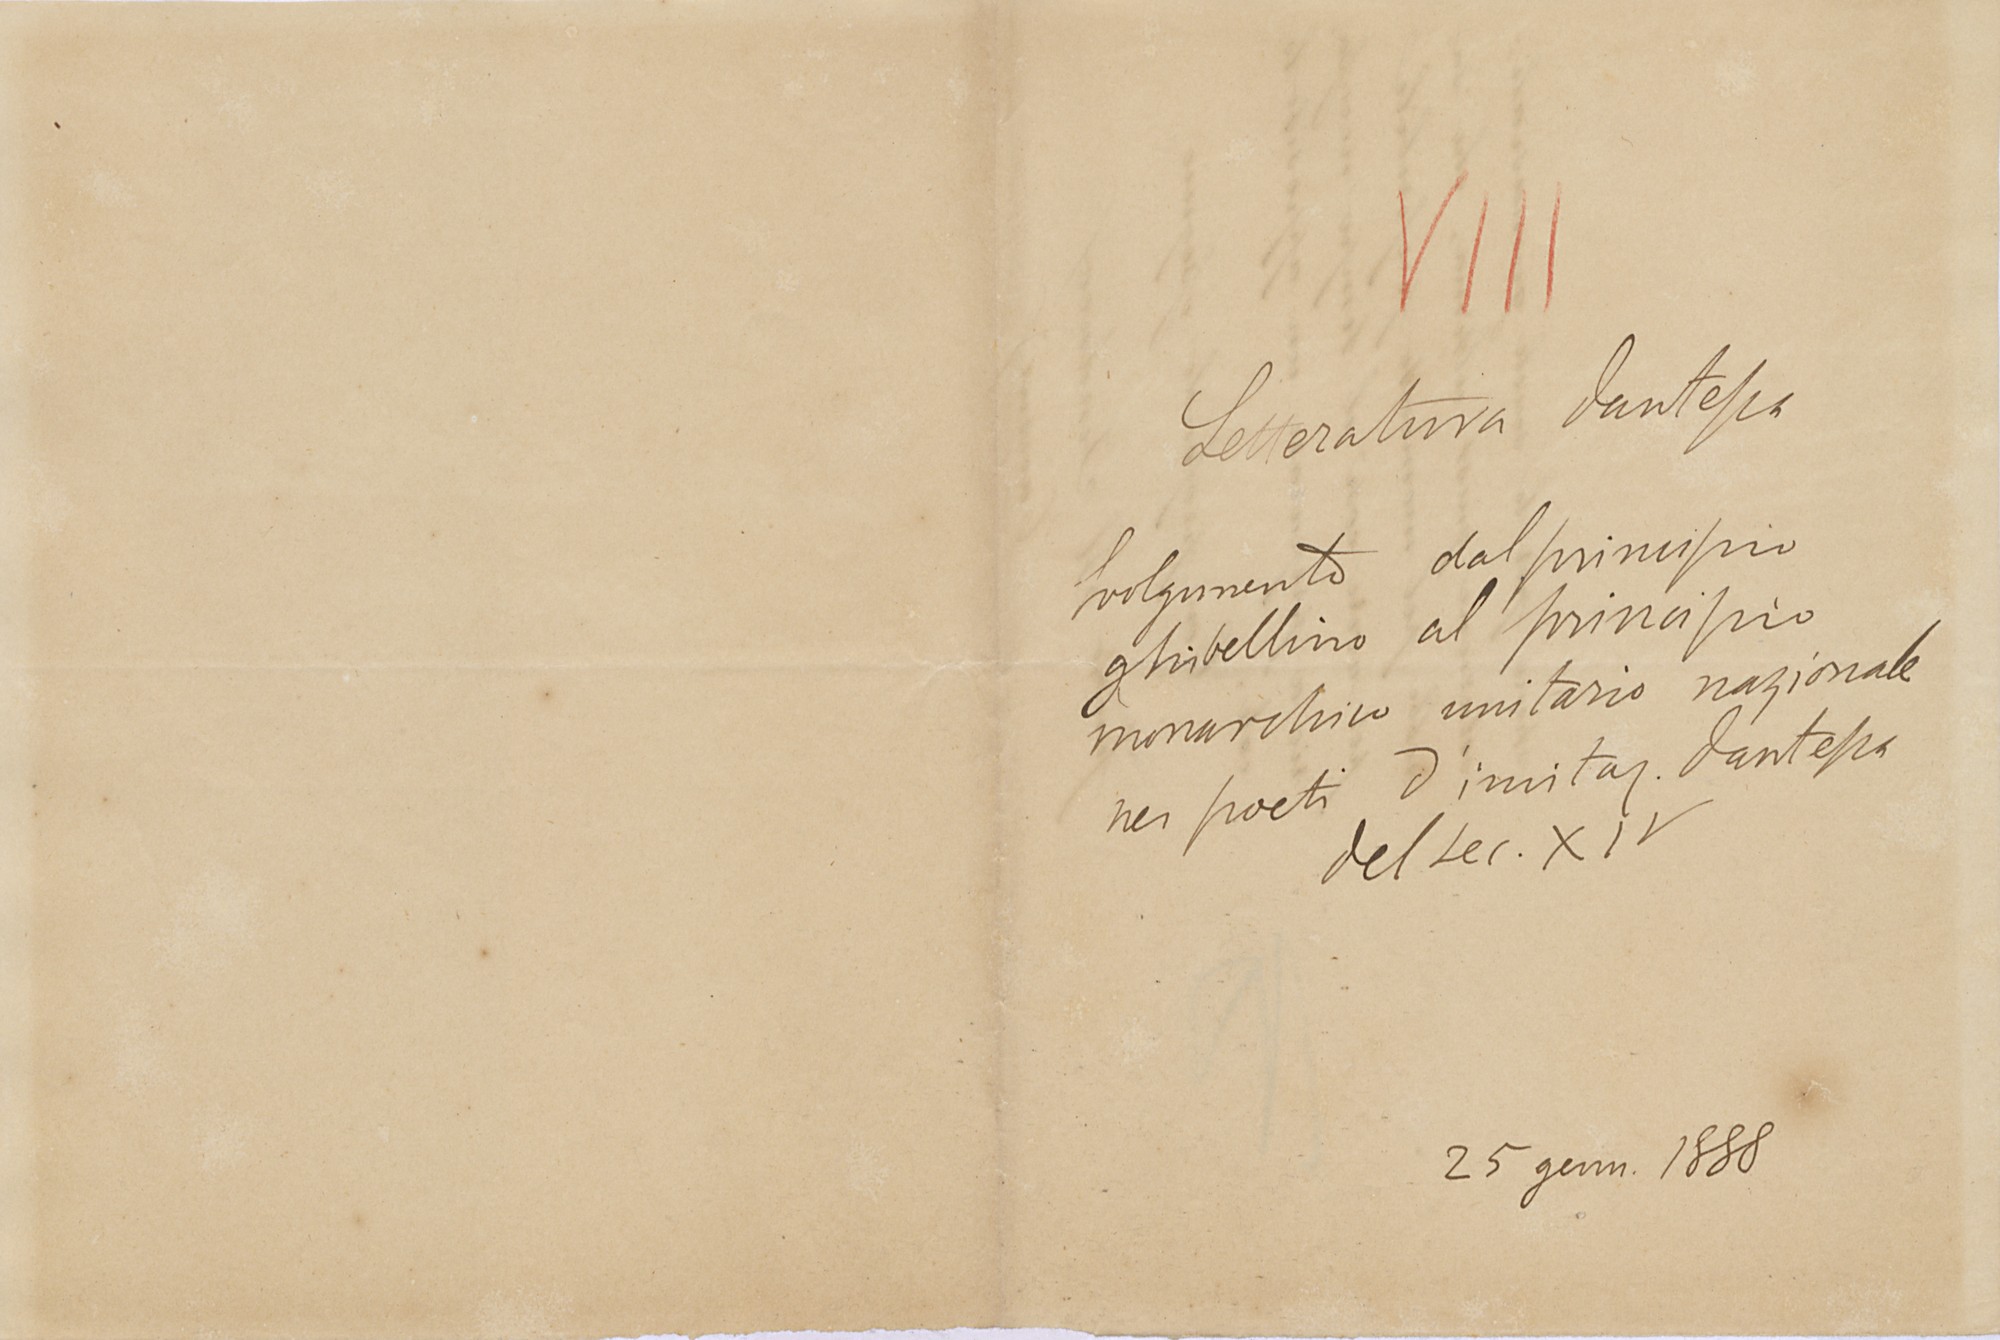 VIII
Letteratura dantesca
Svolgimento dal principio
ghibellino al principio
monarchico unitario nazionale
nei poeti d'imitaz. dantesca
del sec. XIV
25 genn. 1888